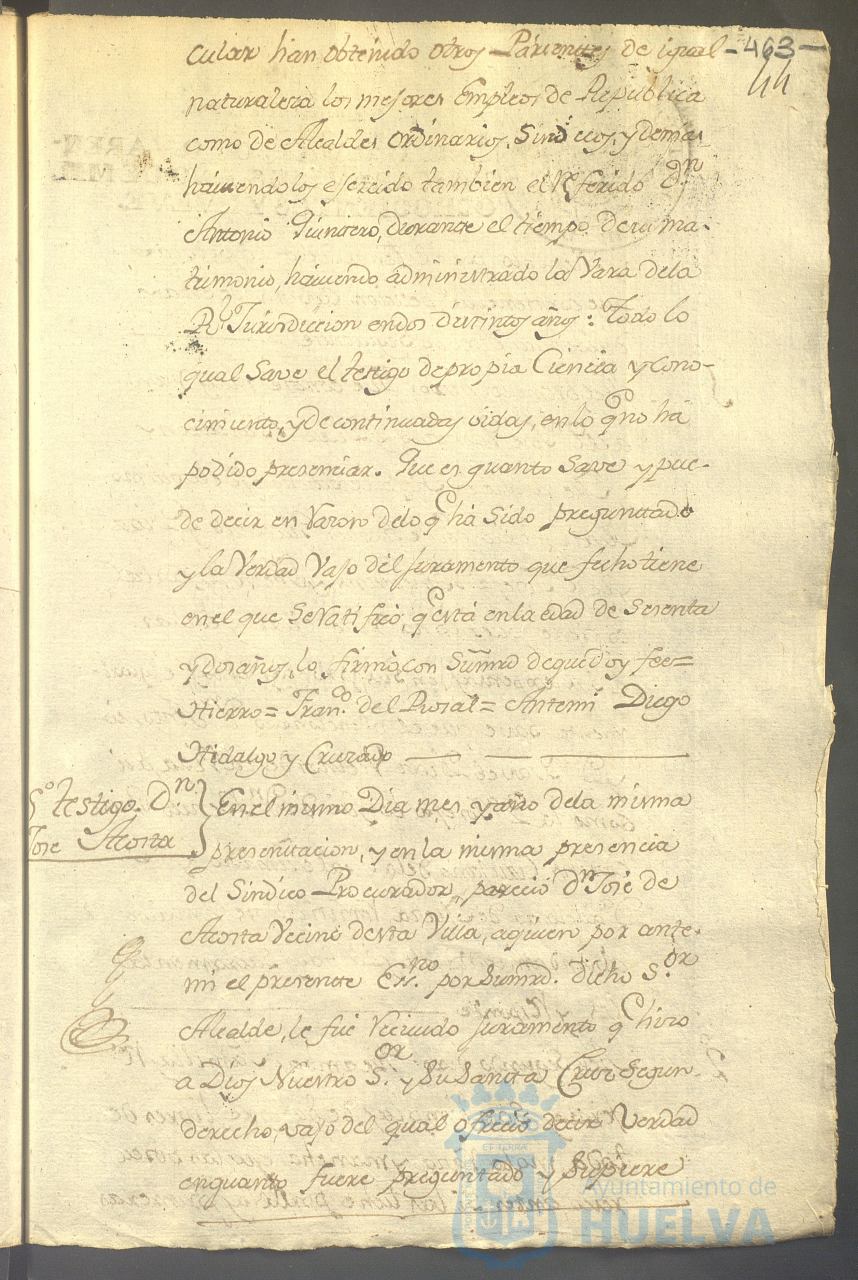 -463-
44
cular han obtenido otros Parientes de igual
naturaleza los mejores Empleos de Republica
como de Alcaldes ordinarios, Sindicos, y demas
haviendolos esercido tambien el Referido Dn
Antonio Quintero, durante el tiempo de su ma-
trimonio, haviendo administrado la Vara dela
Rl Jurisdiccion endos distintos años: Todo lo
qual Save el testigo de propia Ciencia y Cono-
cimiento, y de continuadas oidas, en lo q no há
podido presenciar. Que es quanto Save y pue-
de decir en Razon delo q há Sido preguntado
y la Verdad Vajo del Juramento que fecho tiene
en el que Se Ratificó, q está en la edad de Sesenta
y dos años, lo firmó, con Sumrd de que doy fee=
Hierro= Franco. del Rosal= Antemi Diego
Hidalgo y Cruzado
5º testigo Dn
Jose Acosta
En el mismo Dia mes y año dela misma
presentacion, y en la misma presencia
del Sindico Procurador, pareció Dn José de
Acosta Vecino desta Villa, aquien por ante-
mi el presente Essno. por Sumrd. dicho S.or
Alcalde, le fue Recivido juramento q hizo
a Dios Nuestro S.or y Su Santa Cruz Segun
derecho, vajo del qual ofreció decir Verdad
enquanto fuere preguntado y Supiere
Ayuntamiento de
HUELVA